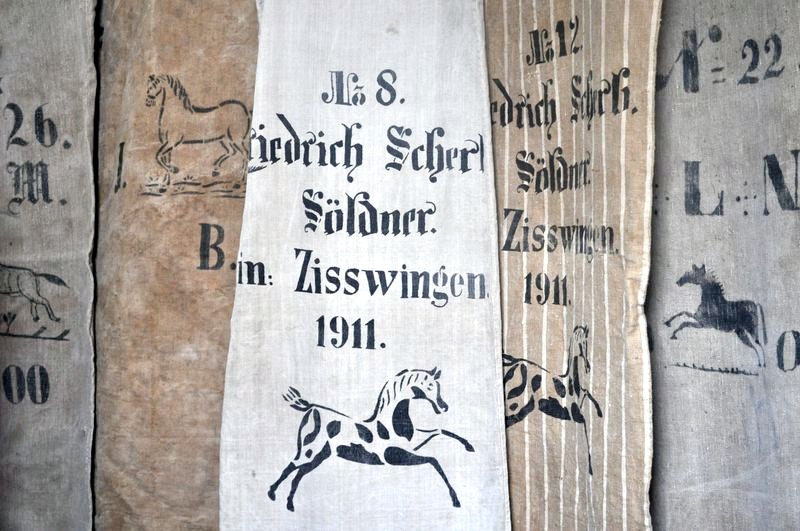 26.
M.
00
B.
№ 8.
Friedrich Scherl
Söldner.
in: Zisswingen.
1911.
№ 12.
edrich Scherli.
Söldner.
Zisswingen.
1911.
№ 22
L : N